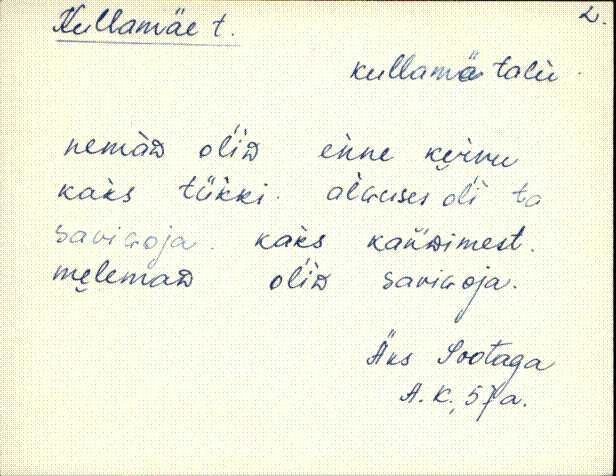 Kullamäe t.
2.
kullamä talu
nemàᴅ ol'iᴅ enne kɐ̭rvu
kaks tükki. alɢuses ol'i ta
saviɢoja. kaks kaǜᴅimest.
mɐ̭lemaᴅ ol'iᴅ saviɢoja.
Äks Sootaga
A. K. 57 a.